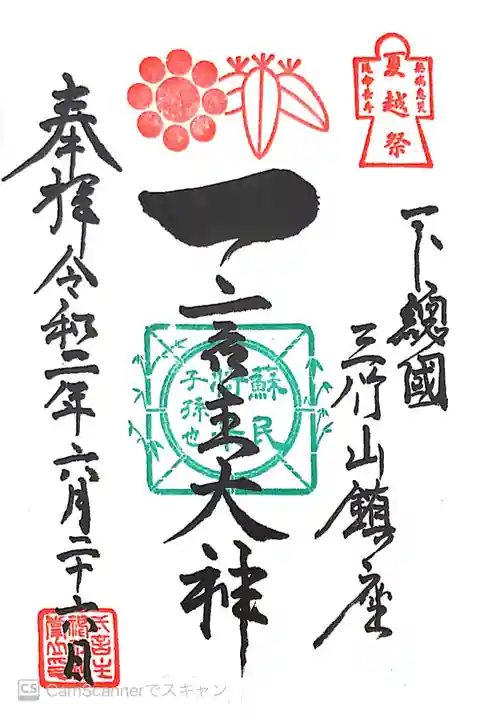 夏越祭
無病息災
延命長寿
下總國
三竹山鎮座
一言主大神
蘇民
将来
子孫也
奉拝令和二年六月二十六日
CS CamScannerでスキャン